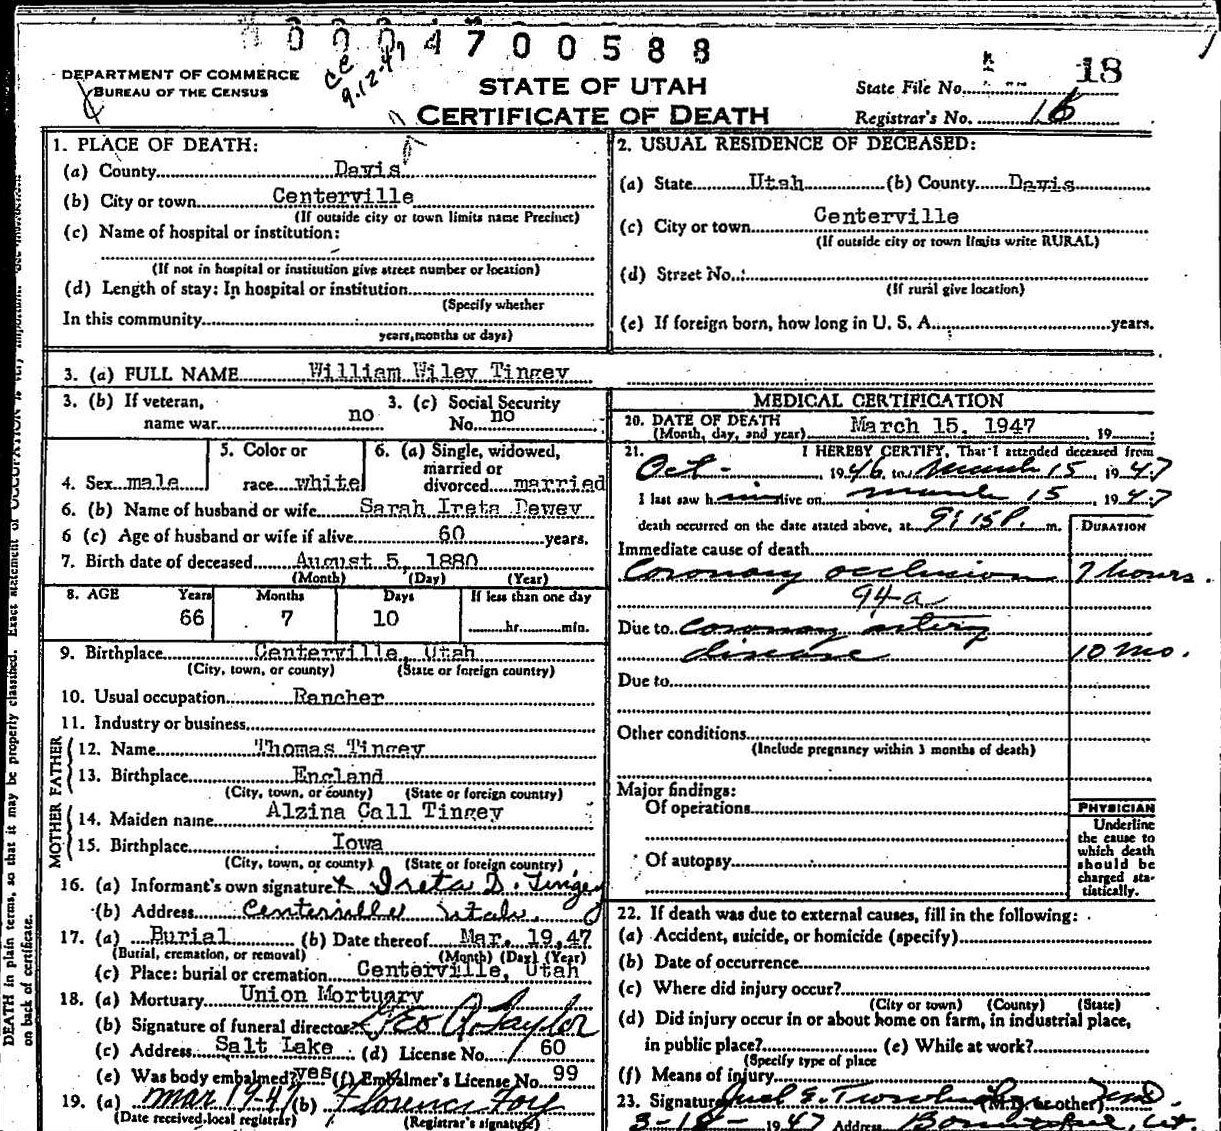 0004700588
CC
9-12-47
DEPARTMENT OF COMMERCE
BUREAU OF THE CENSUS
STATE OF UTAH
CERTIFICATE OF DEATH
State File No. 18
Registrar's No. 16
1. PLACE OF DEATH:
(a) County Davis
(b) City or town Centerville
(If outside city or town limits name Precinct)
(c) Name of hospital or institution:
(If not in hospital or institution give street number or location)
(d) Length of stay: In hospital or institution
(Specify whether
In this community
years, months or days)
2. USUAL RESIDENCE OF DECEASED:
(a) State Utah (b) County Davis
(c) City or town Centerville
(If outside city or town limits write RURAL)
(d) Street No.
(If rural give location)
(e) If foreign born, how long in U. S. A. years.
3. (a) FULL NAME William Wiley Tingey
3. (b) If veteran, name war no
3. (c) Social Security No. no
4. Sex male
5. Color or race white
6. (a) Single, widowed, married or divorced married
6. (b) Name of husband or wife Sarah Ireta Dewey
6 (c) Age of husband or wife if alive 60 years.
7. Birth date of deceased August 5, 1880
(Month) (Day) (Year)
8. AGE Years Months Days If less than one day
66 7 10 hr. min.
9. Birthplace Centerville, Utah
(City, town, or county) (State or foreign country)
10. Usual occupation Rancher
11. Industry or business
FATHER
12. Name Thomas Tingey
13. Birthplace England
(City, town, or county) (State or foreign country)
MOTHER
14. Maiden name Alzina Call Tingey
15. Birthplace Iowa
(City, town, or county) (State or foreign country)
16. (a) Informant's own signature x Ireta D. Tingey
(b) Address Centerville Utah.
17. (a) Burial (b) Date thereof Mar. 19, 47
(Burial, cremation, or removal) (Month) (Day) (Year)
(c) Place: burial or cremation Centerville, Utah
18. (a) Mortuary Union Mortuary
(b) Signature of funeral director Geo R. Taylor
(c) Address Salt Lake (d) License No. 60
(e) Was body embalmed? yes (f) Embalmer's License No. 99
19. (a) Mar 19-47 (b) Florence Foy
(Date received local registrar) (Registrar's signature)
MEDICAL CERTIFICATION
20. DATE OF DEATH
(Month, day, and year) March 15, 1947, 19
21. I HEREBY CERTIFY, That I attended deceased from
Oct- 1946 to March 15, 1947
I last saw him alive on March 15, 1947
death occurred on the date stated above, at 9:15 P. m.
DURATION
Immediate cause of death
Coronary occlusion 7 hours.
94-a
Due to coronary artery
disease 10 mo.
Due to
Other conditions
(Include pregnancy within 3 months of death)
Major findings:
Of operations
Of autopsy
PHYSICIAN
Underline
the cause to
which death
should be
charged sta-
tistically.
22. If death was due to external causes, fill in the following:
(a) Accident, suicide, or homicide (specify)
(b) Date of occurrence
(c) Where did injury occur?
(City or town) (County) (State)
(d) Did injury occur in or about home on farm, in industrial place,
in public place? (e) While at work?
(Specify type of place
(f) Means of injury
23. Signature (M.D. or other) M.D.
3-18- 1947 Address Bountiful, Ut.
DEATH in plain terms, so that it may be properly classified. Exact statement of OCCUPATION is very important.
on back of certificate.